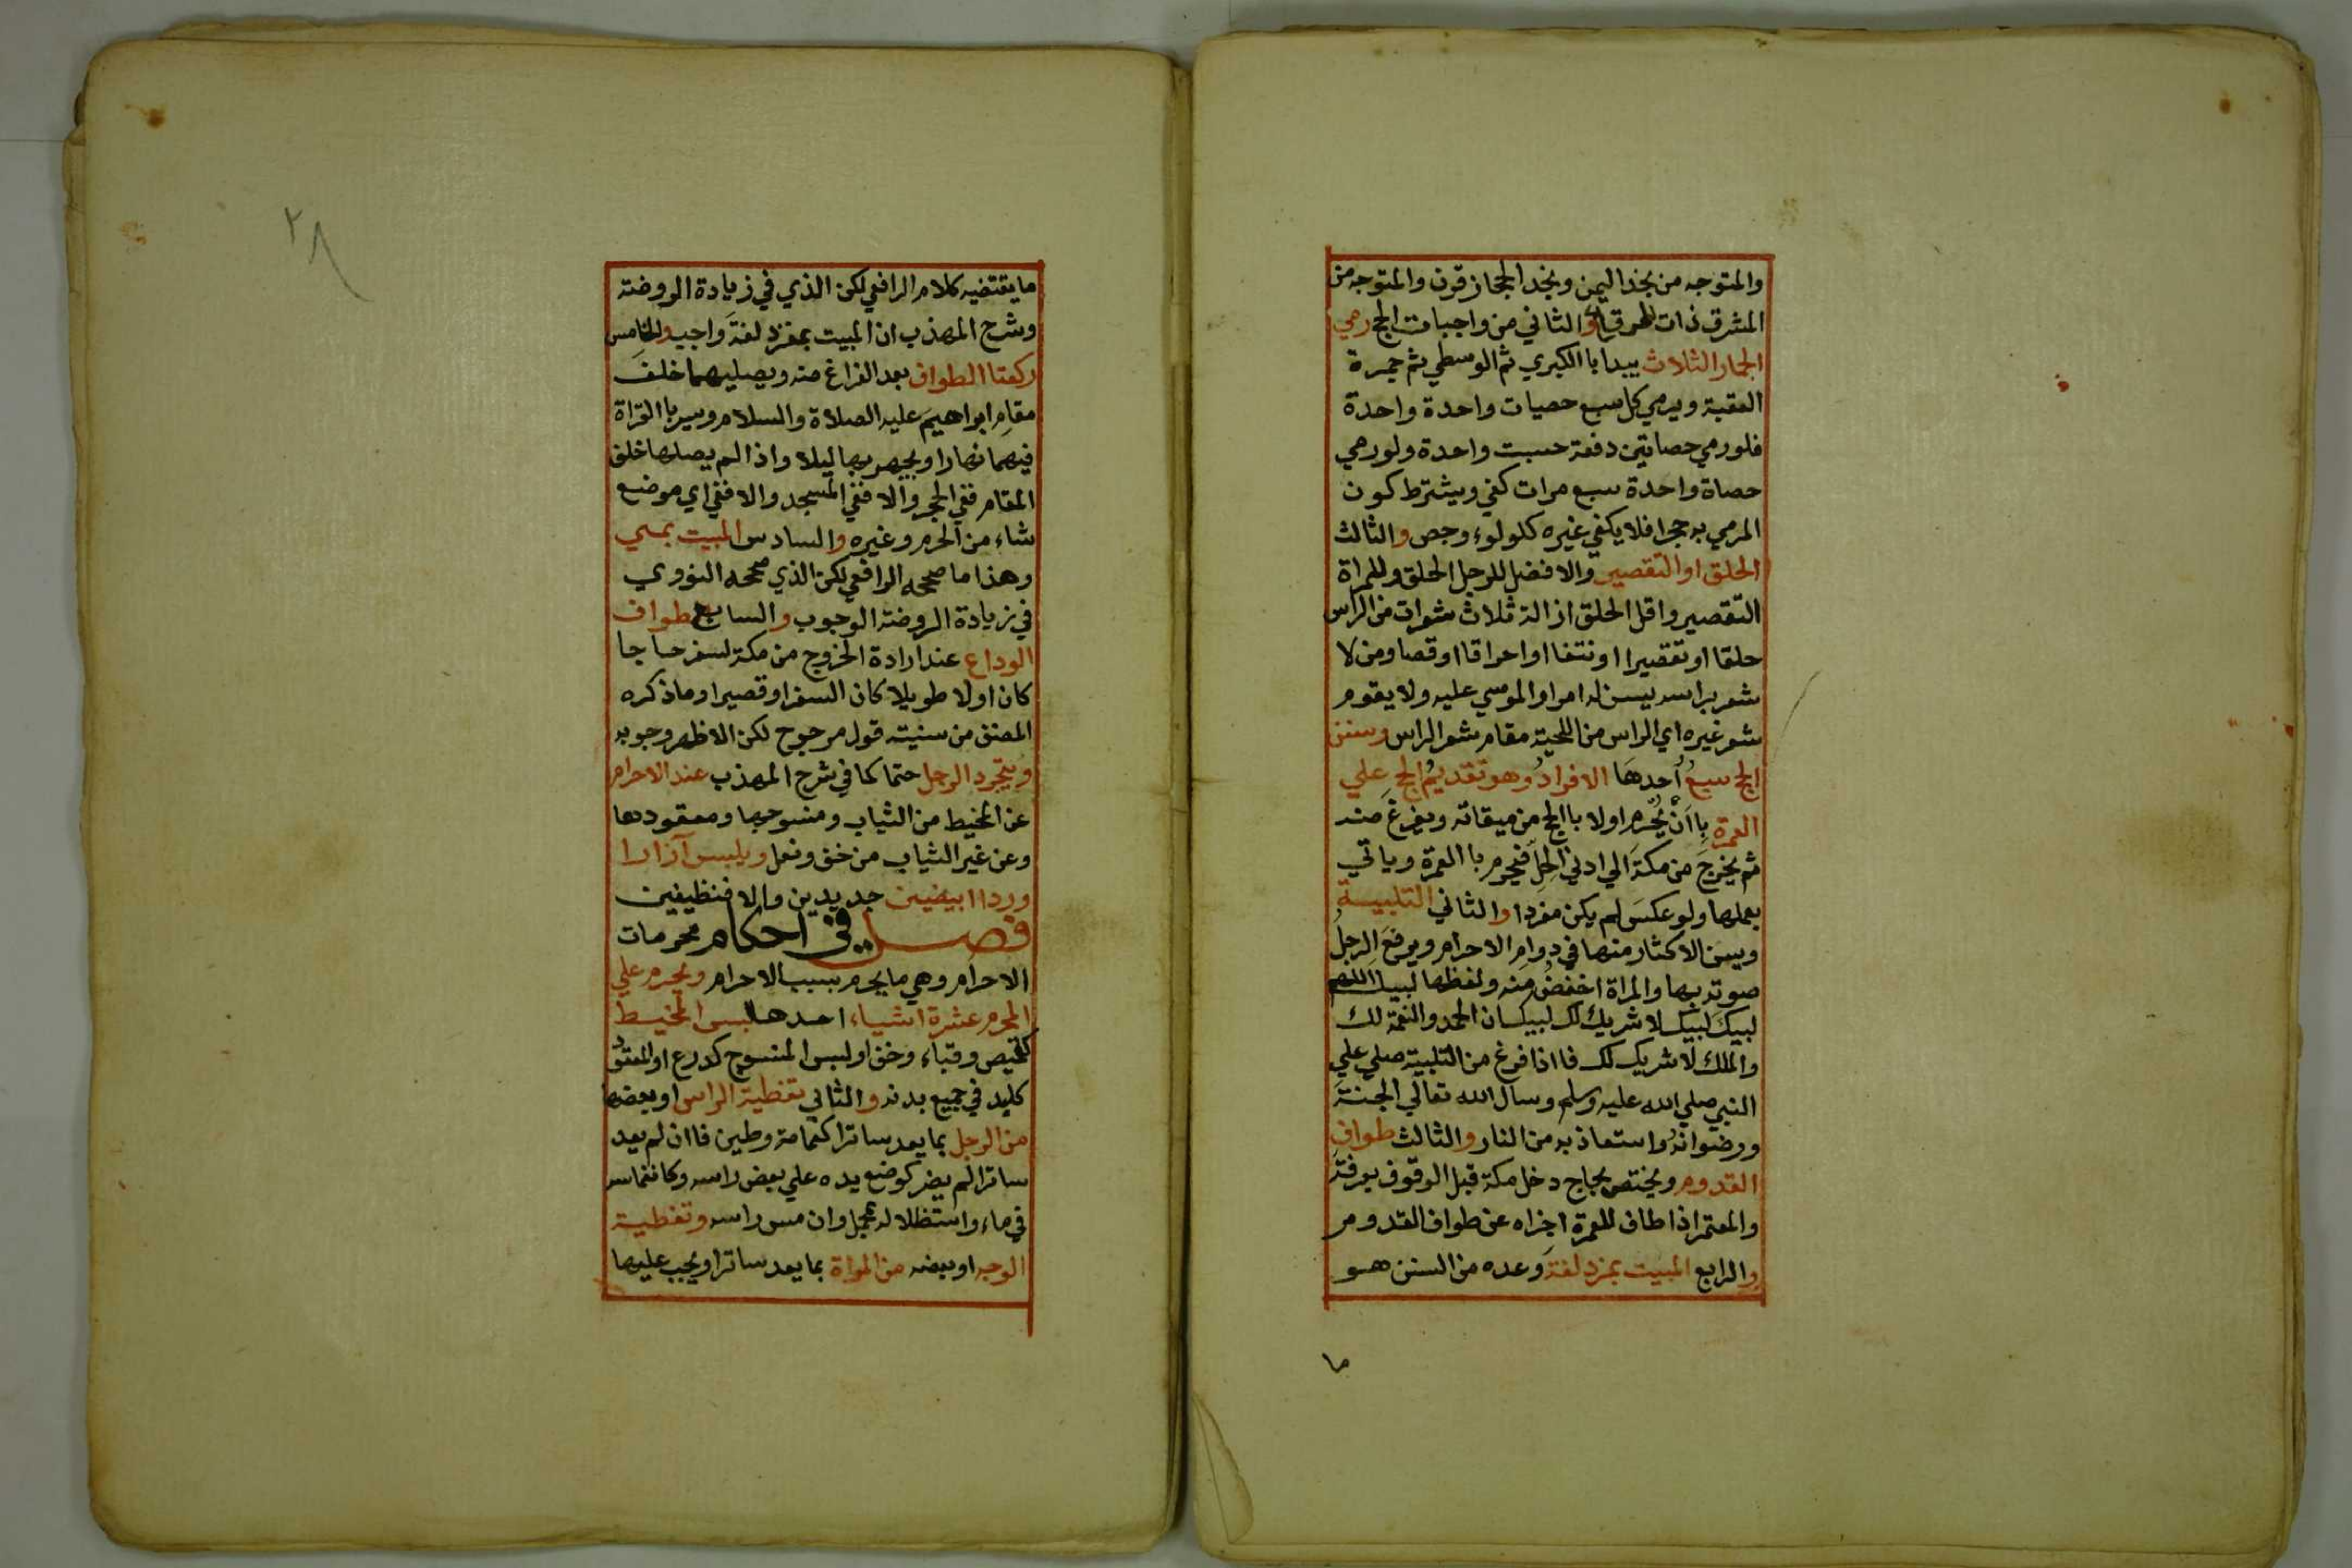 والمتوجه من نجد اليمن ونجد الحجاز قرن والمتوجه من
المشرق ذات والثاني من واجبات الحج رمي
الجمار الثلاث يبدا باالكبري ثم الوسطي ثم جمرة
العقبة ويرمي كل سبع حصيات واحدة واحدة
فلو رمي حصاتين دفعة حسبت واحدة ولو رمي
حصاة واحدة سبع مرات كفي ويشترط كون
المرمي به حجرا فلا يكفي غيره كلولوء وجص والثالث
الحلق او التقصير والافضل للرجل الحلق وللمراة
التقصير واقل الحلق ازالة ثلاث شعرات من الراس
حلقا او تقصيرا او نتفا او احراقا او قصا ومن لا
شعر براسه يسن له امرار الموسي عليه ولا يقوم
شعر غيره اي الراس من اللحية مقام شعر الراس وسنن
الحج سبعُ أحدهَا الافرادُ وهو تقديمُ الحج علي
العمرة بِاانْ يُحْرم اولا باالحج من ميقاته ويفرغَ منه
ثم يخرجَ من مكةَ الي ادني الحِلِّ فيحرم باالعمرة وياتي
بعملها ولو عكسَ لم يكن مفردا والثاني التلبيـــة
ويسن الاكثار منها في دوام الاحرام ويرفعَ الرجلُ
صوته بها والمراة اخفضُ منه ولفظها لبيك اللهم
لبيكَ لبيك لا شريك لك لبيك ان الحمد والنعمة لك
والملك لا شريك لك فااذا فرغ من التلبية صلي علي
النبي صلي الله عليه وسلم وسال الله تعالي الجنةَ
ورضوانَهُ واستعاذ به من النار والثالث طواف
القدوم ويختص بحاج دخل مكة قبل الوقوف بعرفةَ
والمعتمر اذا طاف للعمرة اجزاه عن طواف القدوم
والرابع المبيت بمزدلفةَ وعده من السنن هـو
ما
٢٨
ما يقتضيه كلام الرافعي لكن الذي في زيادة الروضة
وشرح المهذب ان المبيت بمزدلفةَ واجب والخامس
ركعتا الطواف بعد الفراغ منه ويصليهما خلفَ
مقامِ ابراهيمَ عليه الصلاة والسلام ويسر باالقراة
فيهما نهارا ويجهر بها ليلا واذا لم يصلها خلف
المقام ففي الحجر والا ففي المسجد والا ففي اي موضع
شاء من الحرم وغيره والسادس المبيت بمني
وهذا ما صححه الرافعي لكن الذي صححه النووي
في زيادة الروضة الوجوب والسابع طواف
الوداع عند ارادة الخروج من مكة لسفر حاجا
كان اولا طويلا كان السفر او قصيرا وما ذكره
المصنف من سنيته قول مرجوح لكن الاظهر وجوبه
ويتجرد الرجل حتما كما في شرح المهذب عند الاحرام
عن المخيط من الثياب ومنسوجها ومعقودها
وعن غير الثياب من خف ونعل ويلبس آزارا
وردا ابيضين جديدين والا فنظيفين
فصـــل في احكام محرمات
الاحرام وهي ما يحرم بسبب الاحرام ويحرم علي
المحرم عشرة اشياء احدها لبس المخيط
كقميص وقباء وخف او لبس المنسوج كدرع او المعقود
كلبد في جميع بدنه والثاني تغطية الراس او بعضها
من الرجل بما يعد ساترا كعمامة وطين فاان لم يعد
ساترا لم يضر كوضع يده علي بعض راسه وكانغماسه
في ماء واستظلاله بمحمل وان مس راسه وتغطيـة
الوجه او بعضه من المراة بما يعد ساترا ويجب عليها